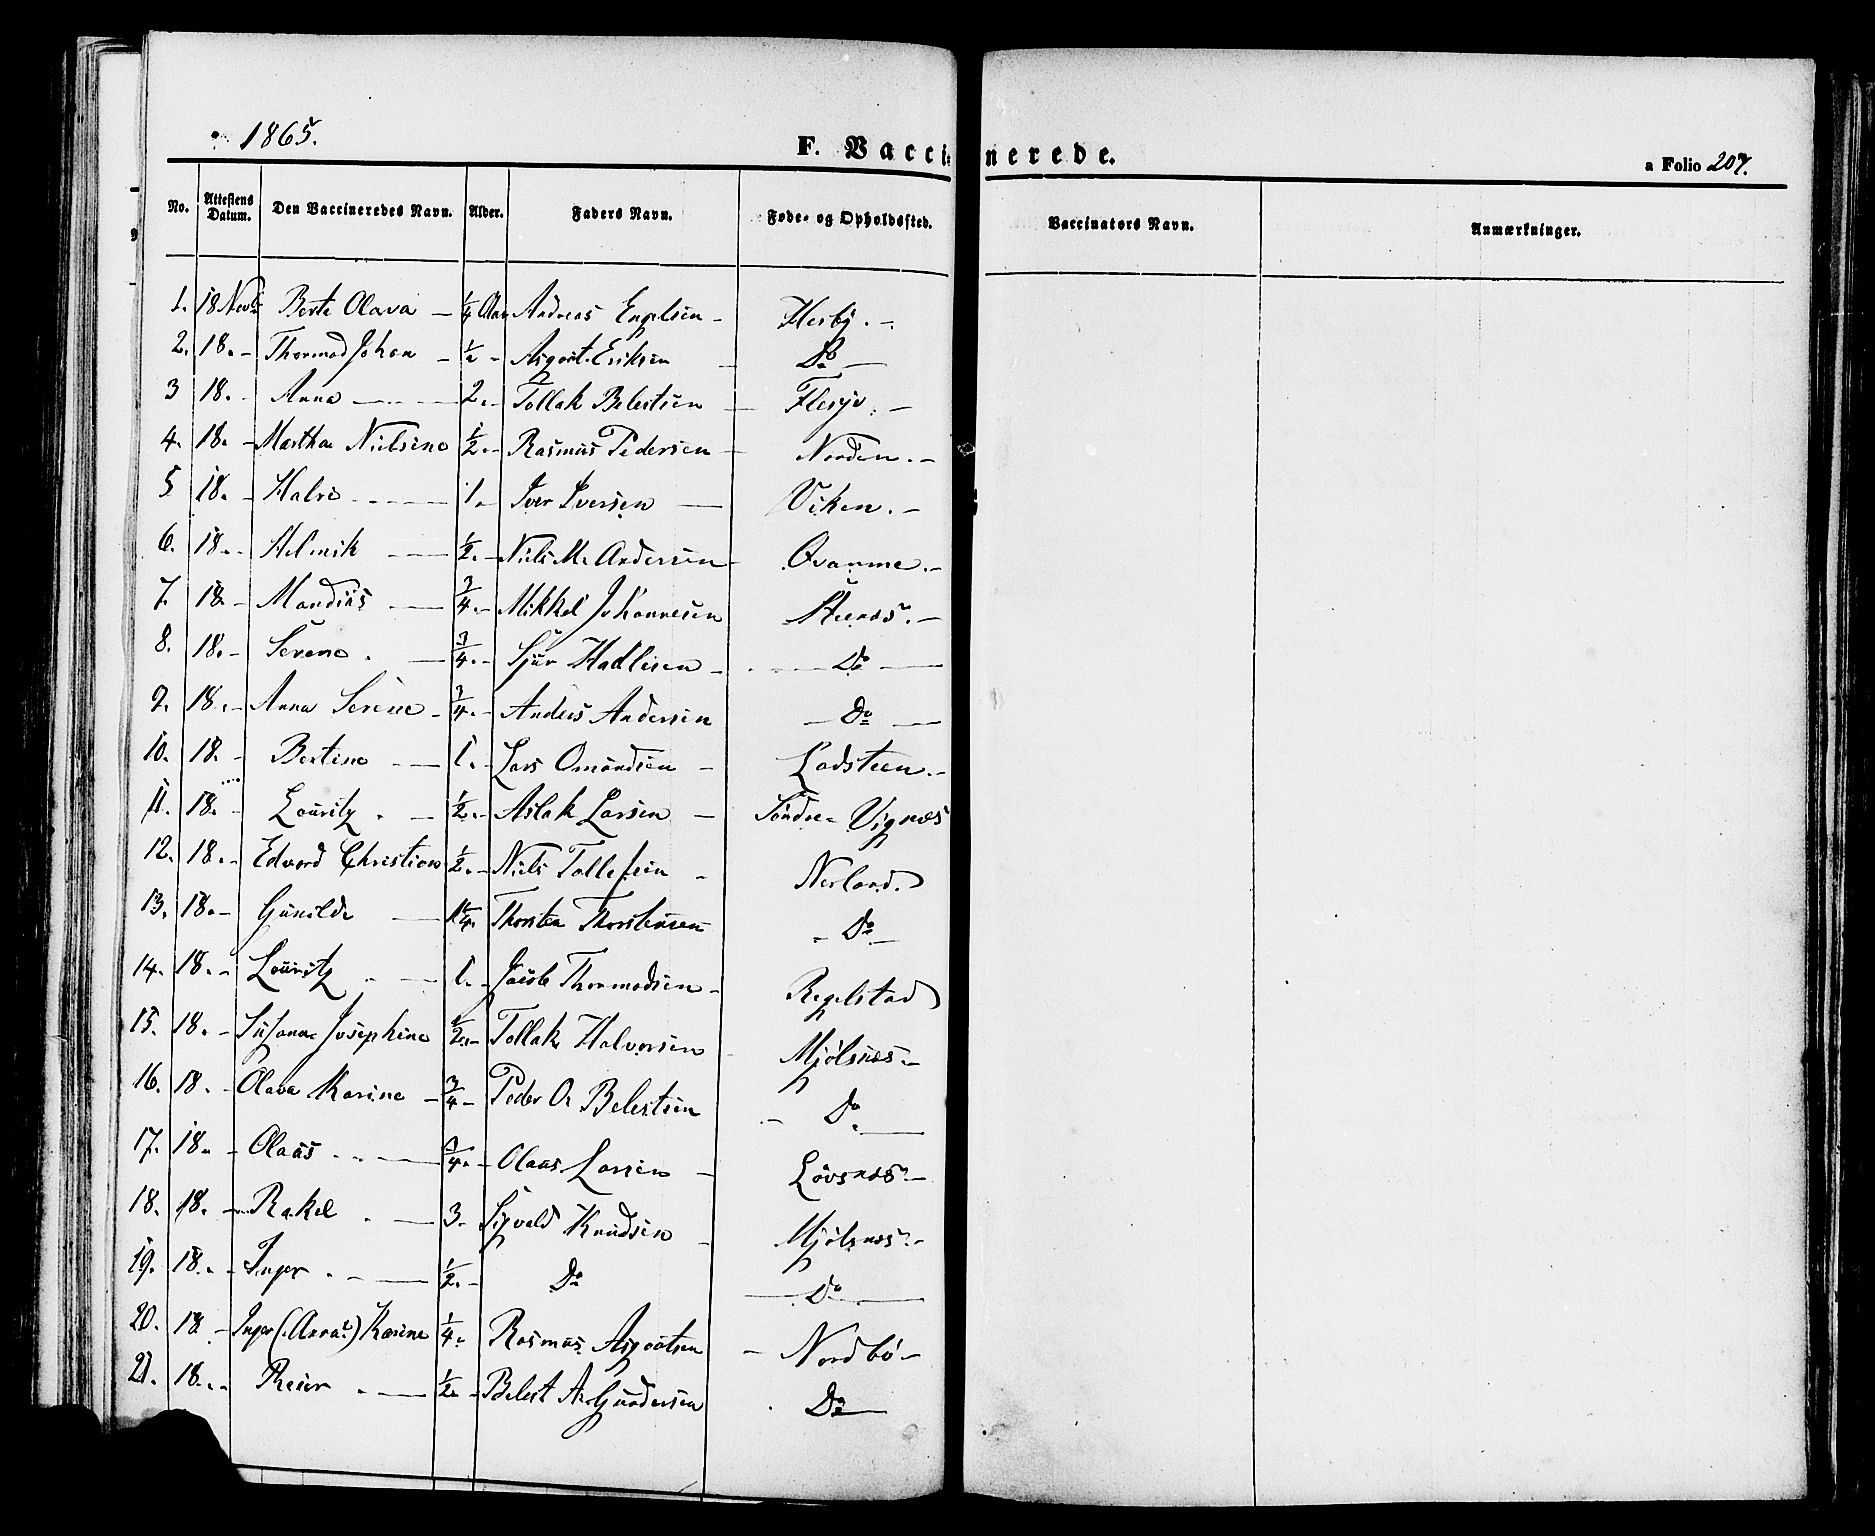 1865.
F. Vaccinerede.
a Folio 207.
No. Attestens Datum. Den Vaccineredes Navn. Alder. Faders Navn. Føde- og Opholdssted. Vaccinators Navn. Anmærkninger.
1. 18 Novbr Berte Olava — 1/4 Aar Andreas Engelsen - Hesby. -
2. 18. - Thormod Johan - 1/2 - Asgout Eriksen - Do -
3 18. - Anna — 2. - Tollak Belestsen — Flesjø. -
4. 18. - Martha Nielsine 1/2. - Rasmus Pedersen - Norden. -
5 18. - Halvo - 1. Iver Iversen — Viken. -
6. 18. - Helmik — 1/2. - Niels M. Andersen - Qvamme. -
7. 18. - Mandius — 3/4. - Mikkel Johannesen -
8. 18. - Serene . — 3/4. - Sjur Hadlesen - Do —
9. 18. - Anna Serene - 3/4. - Anders Andersen — Do —
10. 18. - Bertine — 1. - Lars Omundsen - Ladsteen. -
11. 18. - Louritz . — 1/2. - Aslak Larsen — Søndre Vignæs
12. 18. - Edvard Christian 1/2. - Niels Tollefsen - Nerland.
13. 18. - Gunilde — 1 1/4. Thorsten Thorstensen - Do -
14. 18. - Louritz . — 1. - Jacob Thormodsen - Regelstad
15. 18. - Susanne Josephine 1/2. - Tollak Halvorsen - Mjølsnæs. -
16. 18. - Olava Karine - 3/4 - Peder O. Belestsen - Do. —
17. 18. - Olaus — 3/4. - Olaus Larsen - Løvsnæs. -
18. 18. - Rakel . — 3. Sigvald Knudsen - Mjølsnæs. -
19. 18. - Inger . — 1/2. - Do — Do —
20. 18 - Inger (Anna?) Karine 1/4. Rasmus Asgoutsen - Nordbø -
21. 18. - Reier . — 1/2. - Belest A. Gundersen . Do —